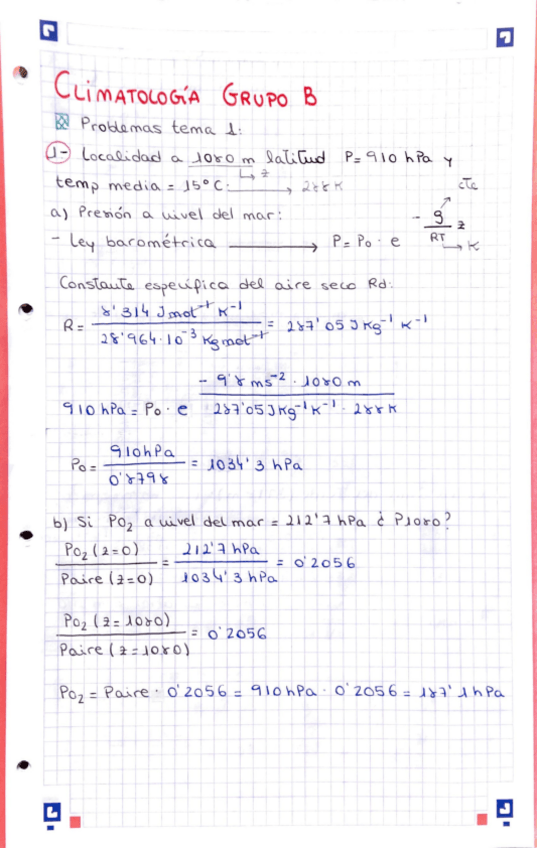 CLIMATOLOGÍA GRUPO B
Problemas tema 1:
1- Localidad a 1080 m latitud P=910 hPa y
z
temp media = 15°C: → 288 K
cte
a) Presión a nivel del mar:
- Ley barométrica → P = P₀ · e^(- g/RT z)
K
Constante específica del aire seco Rd:
R = 8'314 J mol⁻¹ K⁻¹ / 28'964·10⁻³ Kg mol⁻¹ = 287'05 J Kg⁻¹ K⁻¹
910 hPa = P₀ · e^(- 9'8 ms⁻² · 1080 m / 287'05 J Kg⁻¹ K⁻¹ · 288 K)
P₀ = 910 hPa / 0'8798 = 1034'3 hPa
b) Si PO₂ a nivel del mar = 212'7 hPa ¿ P1080?
PO₂ (z=0) / Paire (z=0) = 212'7 hPa / 1034'3 hPa = 0'2056
PO₂ (z=1080) / Paire (z=1080) = 0'2056
PO₂ = Paire · 0'2056 = 910 hPa · 0'2056 = 187'1 hPa